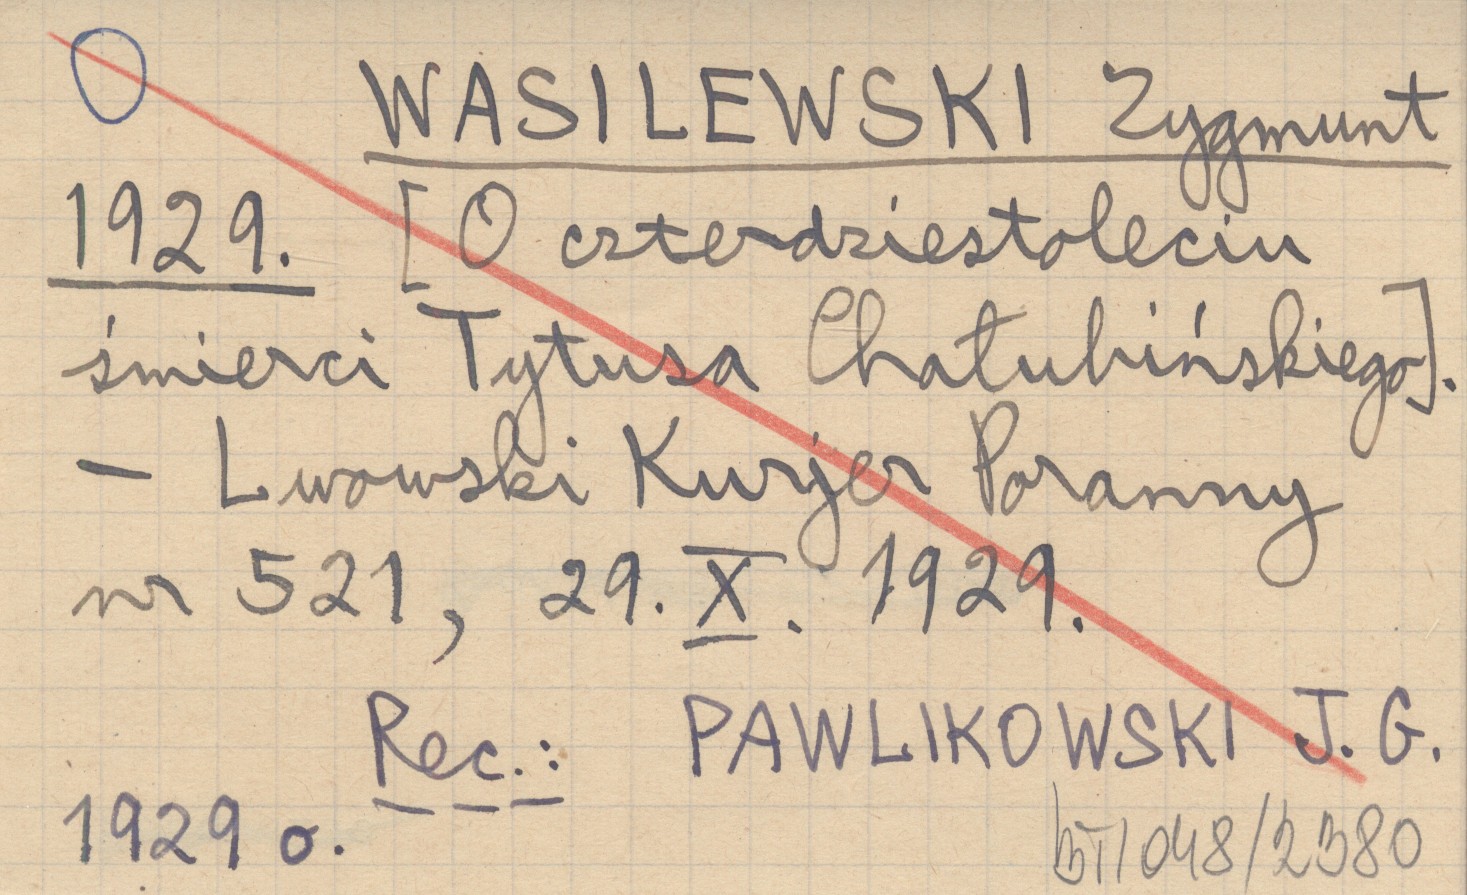 WASILEWSKI Zygmunt
1929. [O czterdziestoleciu
śmierci Tytusa Chałubińskiego].
– Lwowski Kurjer Poranny
nr 521, 29. X. 1929.
Rec.: PAWLIKOWSKI J. G.
1929 o.
BT/048/2380